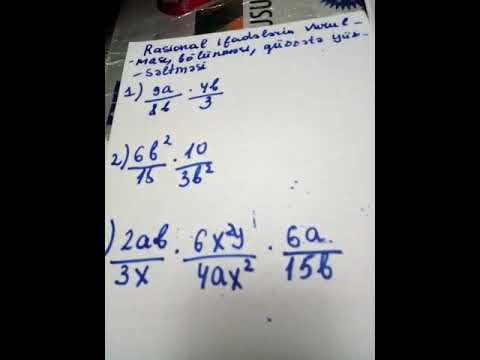 Rasional ifadələrin vurul-
-ması, bölünməsi, qüvvətə yük-
-səltməsi
1) 9a/8b · 4b/3
2) 6b²/15 · 10/3b²
) 2ab/3x · 6x²y/4ax² · 6a/15b